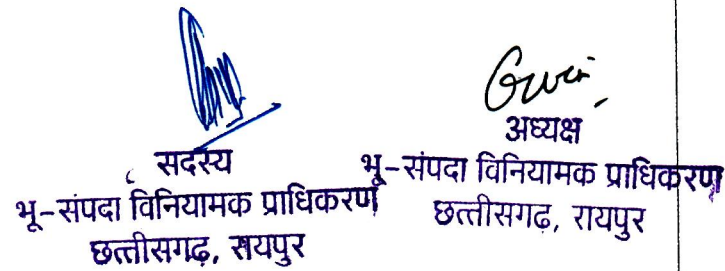 सदस्य
भू-संपदा विनियामक प्राधिकरण
छत्तीसगढ़, रायपुर
अध्यक्ष
भू-संपदा विनियामक प्राधिकरण
छत्तीसगढ़, रायपुर